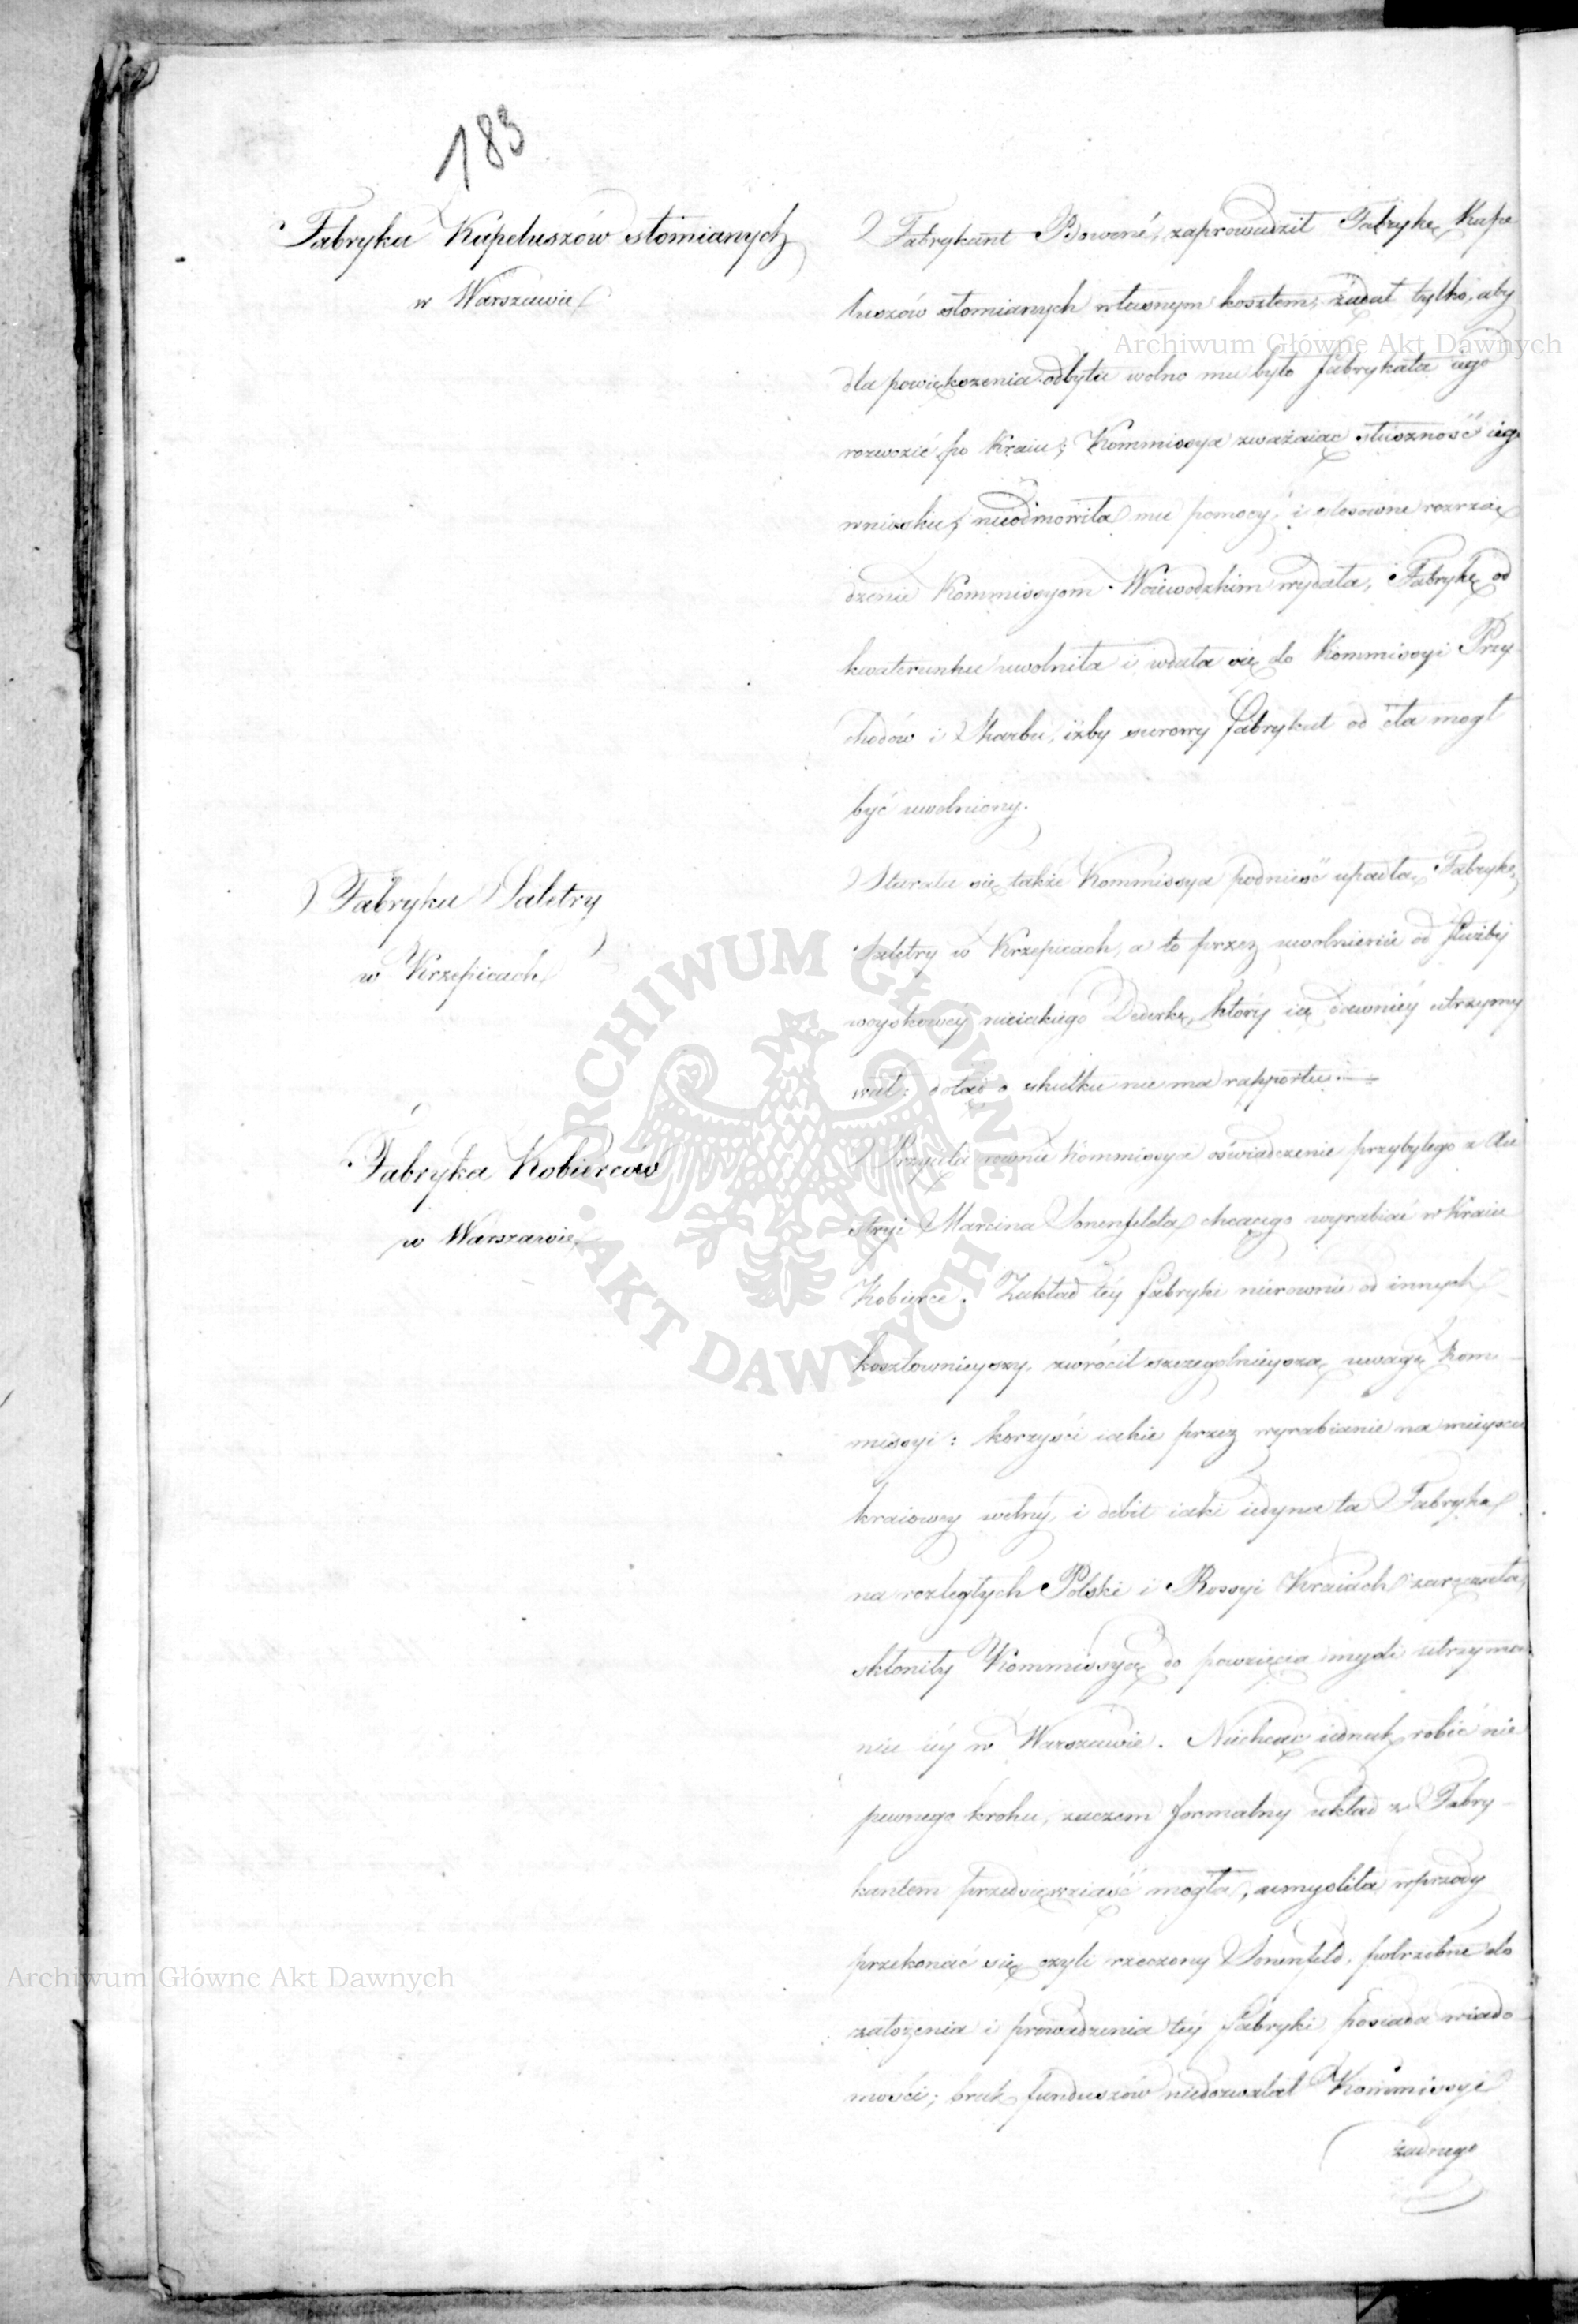 183
Fabryka Kapeluszów słomianych
w Warszawie
Fabrykant Bowoné, zaprowadził Fabrykę Kape
luszów słomianych własnym kosztem, żądał tylko, aby
dla powiększenia odbytu wolno mu było fabrykata iego
rozwozić po Kraiu; Kommissya zważaiąc słuszność iego
wniosku, nieodmówiła mu pomocy, i stosowne rozrzą
dzenie Kommissyom Woiewodzkim wydała, Fabrykę od
kwaterunku uwolniła i udała się do Kommissyi Przy-
chodów i Skarbu, iżby surowy fabrykat od cła mogł
być uwolniony.
Fabryka Saletry
w Krzepicach
Starała się także Kommissya podnieść upadłą Fabrykę
Saletry w Krzepicach, a to przez uwolnienie od służby
woyskowey nieiakiego Dederkę, który ią dawniéy utrzymy
wał: dotąd o skutku nie ma rapportu.
Fabryka Kobierców
w Warszawie
Przyięła równie Kommissya oświadczenie przybyłego z Au
stryi Marcina Sonenfelda, chcącego wyrabiać w Kraiu
Kobierce. Zakład téy fabryki nierównie od innych
kosztownieyszy, zwrócił szczególnieyszą uwagę Kom-
missyi: korzyści iakie przez wyrabianie na mieyscu
kraiowey wełny, i debit iaki iedyna ta Fabryka
na rozległych Polski i Rossyi Kraiach zaręczała,
skłoniły Kommissyą do powzięcia myśli utrzyma
nia iéy w Warszawie. Niechcąc iednak robić nie
pewnego kroku, zaczem formalny układ z Fabry-
kantem przedsięwziąść mogła, umyśliła wprzody
przekonać się czyli rzeczony Sonenfeld, potrzebne do
założenia i prowadzenia téy fabryki posiada wiado
mości; brak funduszów niedozwalał Kommissyi
żadnego
Archiwum Główne Akt Dawnych
ARCHIWUM GŁÓWNE AKT DAWNYCH
Archiwum Główne Akt Dawnych